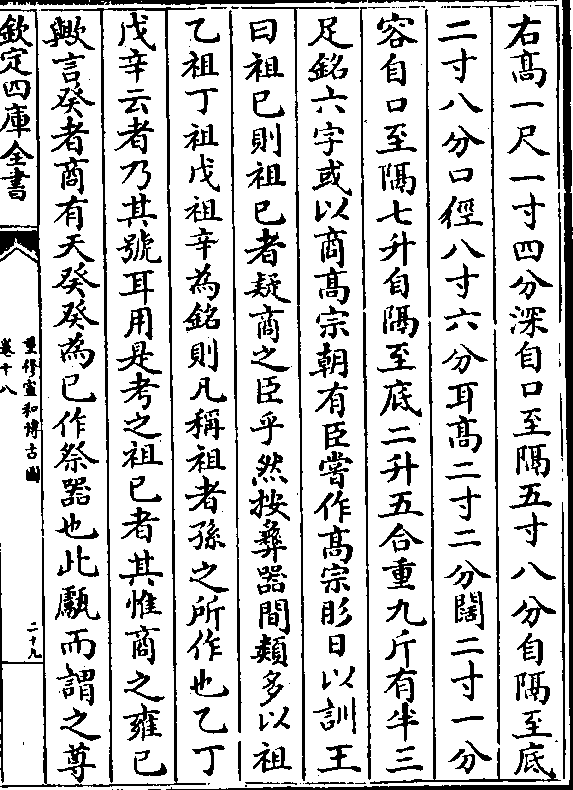 右髙一尺一寸四分深自口至隔五寸八分自隔至底
二寸八分口徑八寸六分耳髙二寸二分闊二寸一分
容自口至隔七升自隔至底二升五合重九斤有半三
足銘六字或以商髙宗朝有臣嘗作髙宗肜日以訓王
曰祖已則祖已者疑商之臣乎然按彛器間頪多以祖
乙祖丁祖戊祖辛為銘則凡稱祖者孫之所作也乙丁
戊辛云者乃其號耳用是考之祖已者其惟商之雍已
歟言癸者商有天癸癸為已作祭器也此甗而謂之尊
欽定四庫全書
重修宣和博古圖
卷十八
二十九